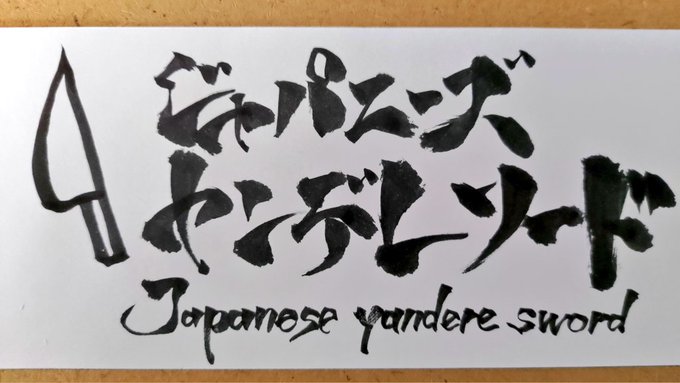 ジャパニーズ
ヤンデレソード
Japanese yandere sword